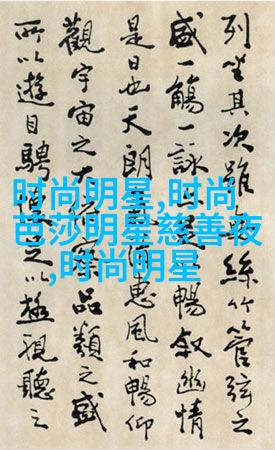 列坐其次雖絲竹管弦之
盛一觴一詠暢敘幽情
是日也天朗惠風和暢仰
觀宇宙之大察品類之盛
所以遊目騁以極視聽之
时尚明星,时尚
芭莎明星慈善夜
,时尚明星